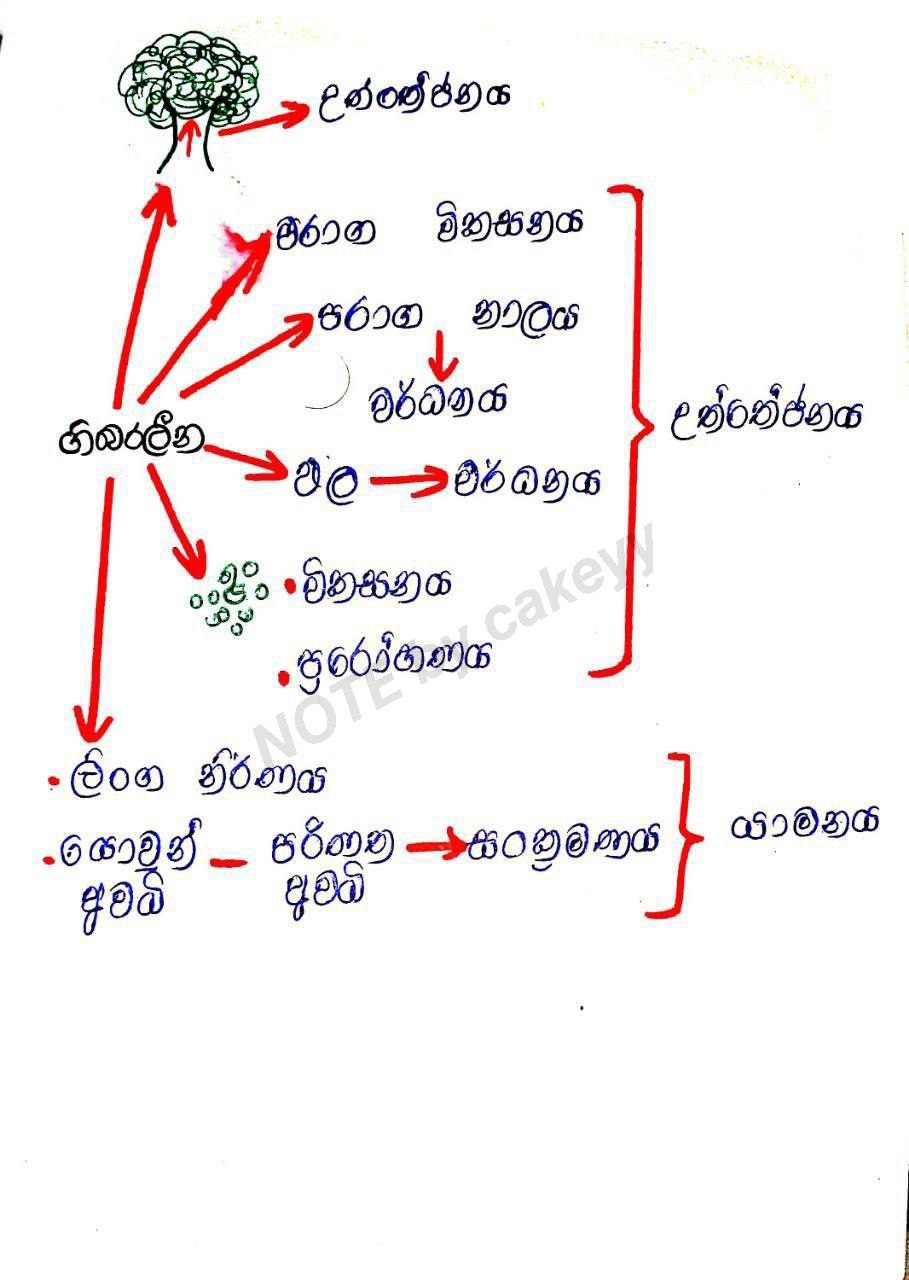 උත්තේජනය
පරාග විකසනය
පරාග නාලය
වර්ධනය
ගිබරලීන
උත්තේජනය
ඵල වර්ධනය
විකසනය
ප්‍රරෝහණය
NOTE by cakeyy
ලිංග නිර්ණය
යොවුන් පරිණත සංක්‍රමණය
අවධි අවධි
යාමනය